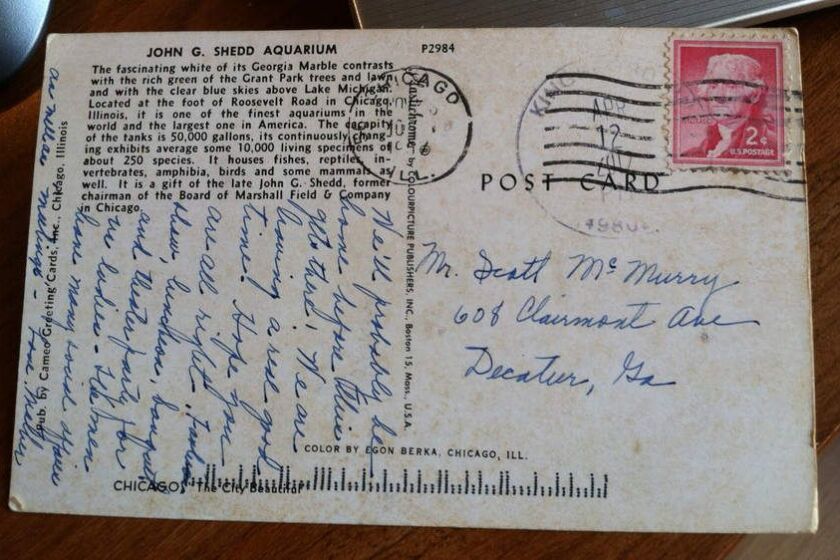 JOHN G. SHEDD AQUARIUM
P2984
The fascinating white of its Georgia Marble contrasts
with the rich green of the Grant Park trees and lawn
and with the clear blue skies above Lake Michigan.
Located at the foot of Roosevelt Road in Chicago,
Illinois, it is one of the finest aquariums in the
world and the largest one in America. The capacity
of the tanks is 50,000 gallons, its continuously chang-
ing exhibits average some 10,000 living specimens of
about 250 species. It houses fishes, reptiles, in-
vertebrates, amphibia, birds and some mammals as
well. It is a gift of the late John G. Shedd, former
chairman of the Board of Marshall Field & Company
in Chicago.
Pub. by Cameo Greeting Cards, Inc., Chicago, Illinois
by COLOURPICTURE PUBLISHERS, INC., Boston 15, Mass., U.S.A.
CHICAGO
ILL.
APR
12
2017
1980
2¢
U.S. POSTAGE
POST CARD
We'll probably be
home before this
gets there! We are
having a real good
time! Hope you
are all right.
luncheon, banquet
and theater party for
the ladies - The men
have many social affairs
Mr. Scott McMurry
608 Clairmont Ave
Decatur, Ga
COLOR BY EGON BERKA, CHICAGO, ILL.
CHICAGO, "The City Beautiful"